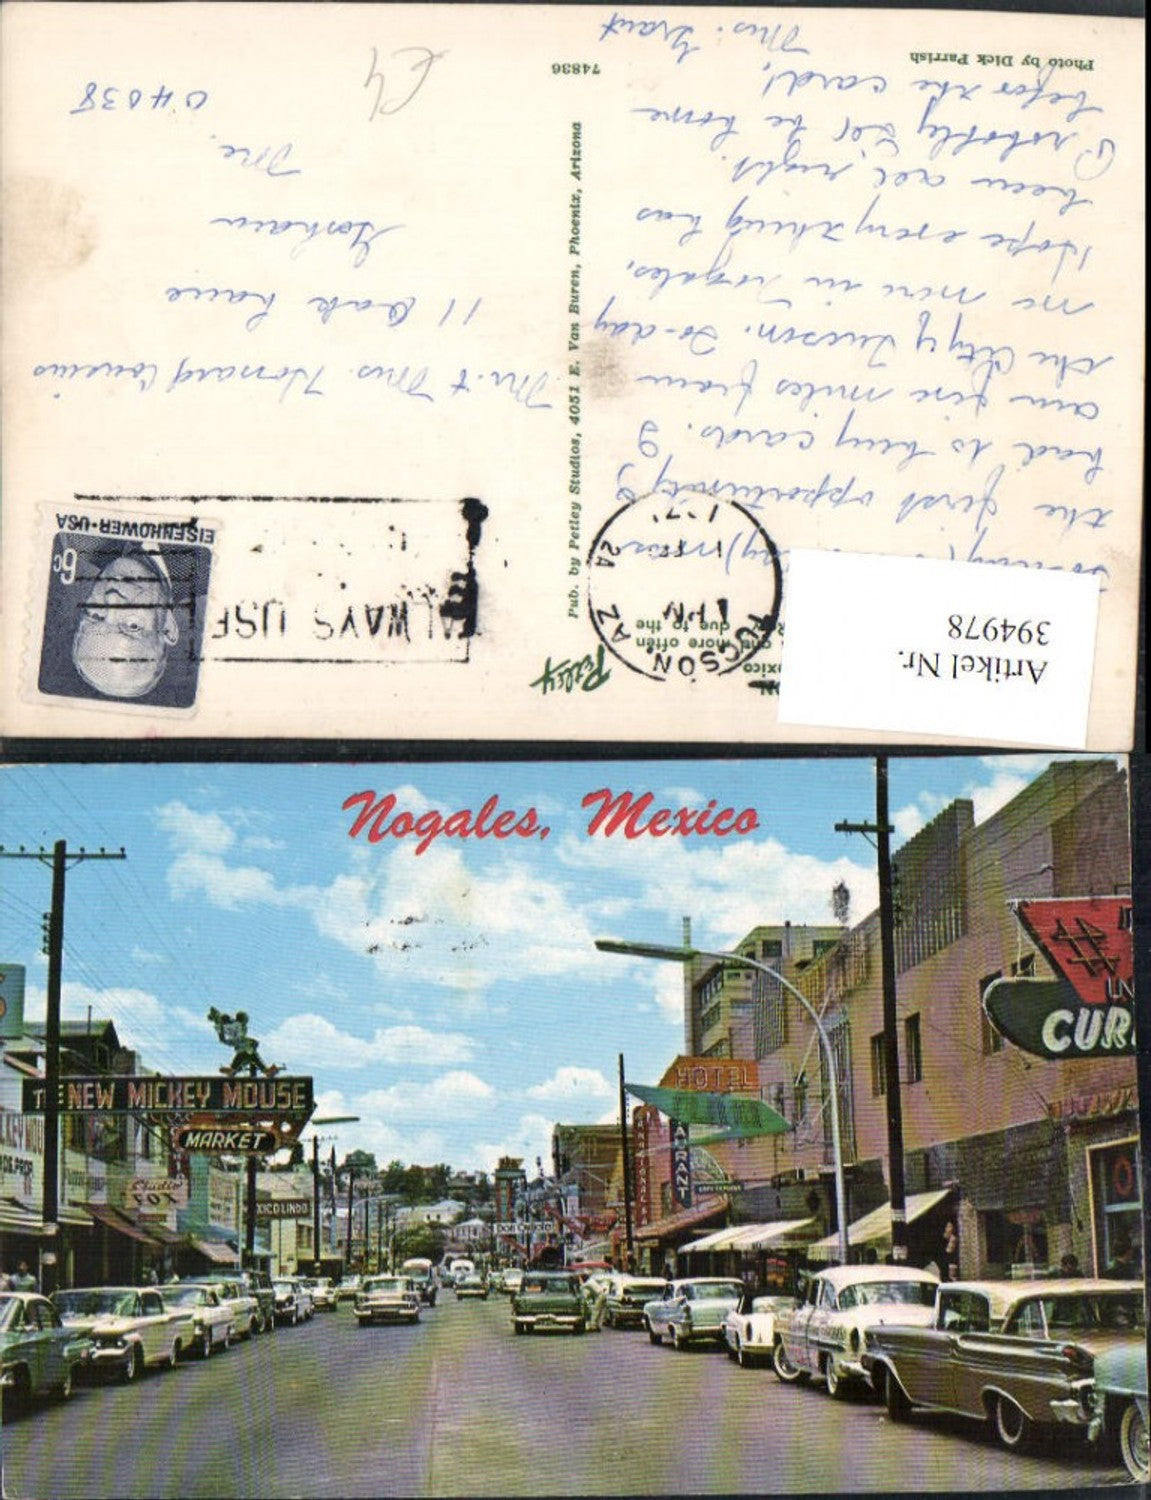 Photo by Dick Parrish
74836
the first opportunity I
had to buy cards. I
am five miles from
the City Tucson. To-day
me nere in Nogales.
Hope everything has
been all right.
Probably I'll be home
befor the card!
Mrs. Grant
Pub. by Petley Studios, 4051 E. Van Buren, Phoenix, Arizona
Petley
one more often
due to the
TUCSON, AZ
1 PM
ALWAYS USE
EISENHOWER·USA
6c
Mr. & Mrs. Howard Cousins
11 Oak Lane
Gorham
Me.
04038
Artikel Nr.
394978
Nogales, Mexico
THE NEW MICKEY MOUSE
MARKET
Studio
FOX
XICO LINDO
HOTEL
CUR